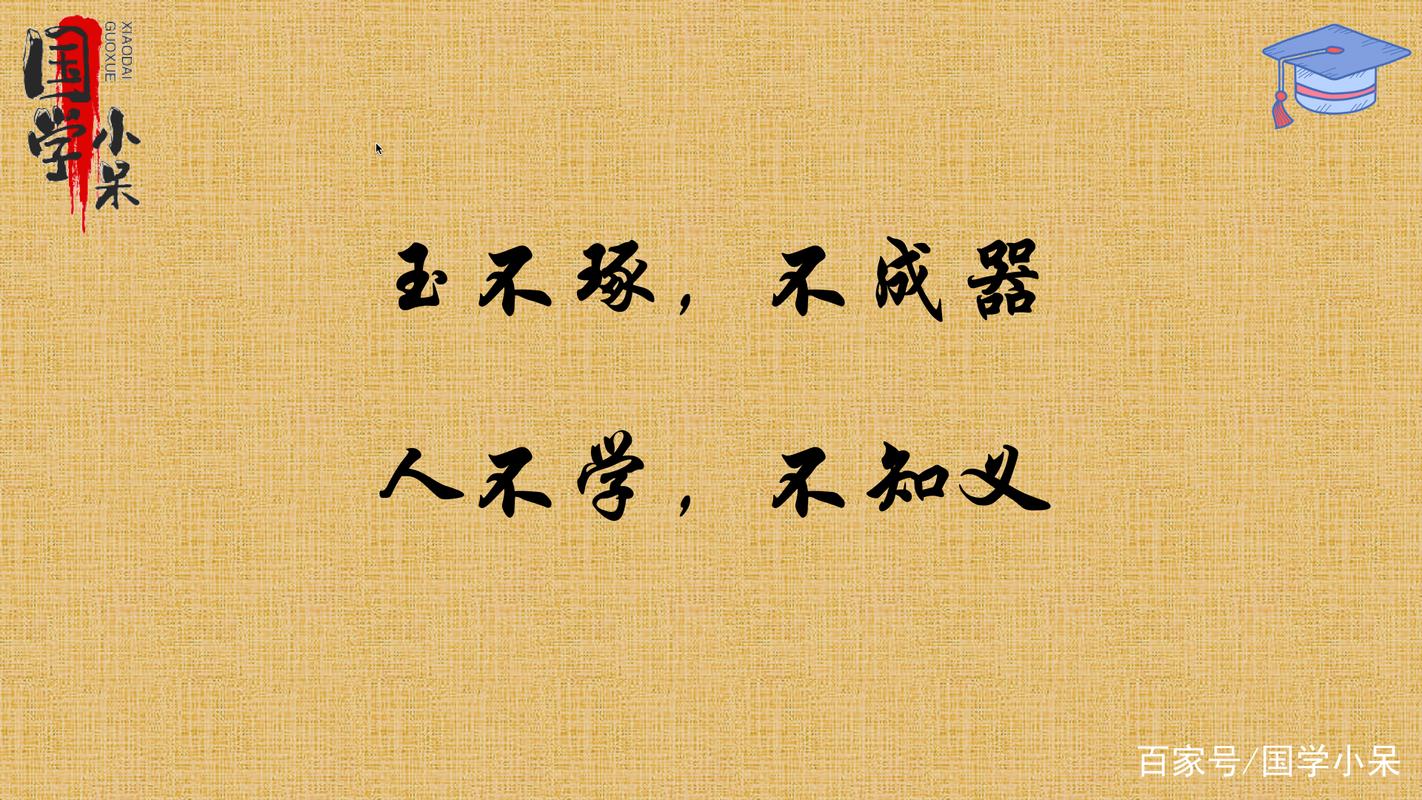 国学小呆
XIAODAI
GUOXUE
玉不琢，不成器
人不学，不知义
百家号/国学小呆